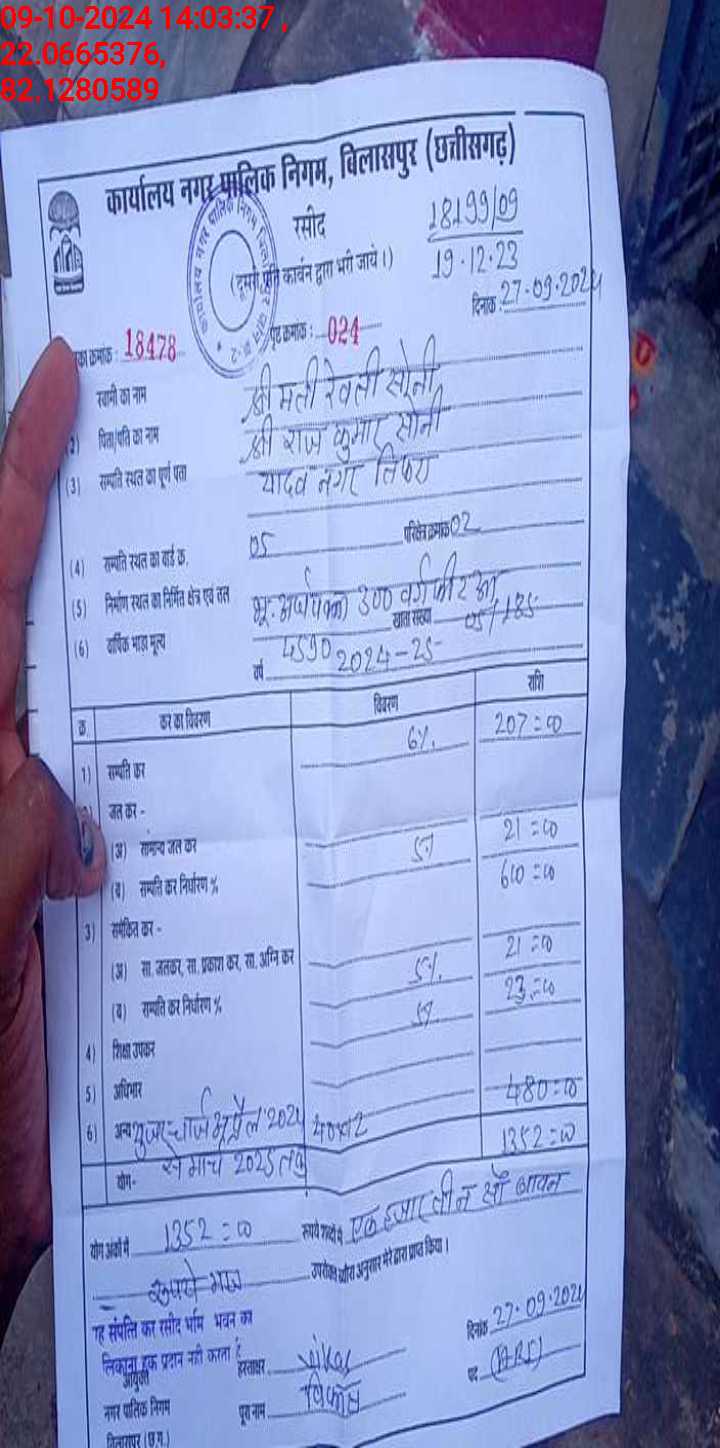 09-10-2024 14:03:37 ,
22.0665376,
82.1280589
कार्यालय नगर पालिक निगम, बिलासपुर (छत्तीसगढ़)
रसीद
18199/09
(दूसरी प्रति कार्बन द्वारा भरी जाये।)
19.12.23
दिनांक 27.09.2024
क्रमांक : 18478 पृष्ठ क्रमांक : 024
स्वामी का नाम श्रीमती रेवती सोनी
2) पिता/पति का नाम श्री राज कुमार सोनी
(3) सम्पति स्थल का पूर्ण पता यादव नगर तिफरा
(4) सम्पति स्थल का वार्ड क्र. 05 परिक्षेत्र क्रमांक 02
(5) निर्माण स्थल का निर्मित क्षेत्र एवं तल भू. 300 वर्ग फीट
खाता संख्या 05/185
(6) वार्षिक भाड़ा मूल्य 4590
वर्ष 2024-25
क्र. कर का विवरण विवरण राशि
1) सम्पति कर 6%. 207=00
जल कर -
(अ) सामान्य जल कर 21=00
(ब) सम्पति कर निर्धारण % 600=00
3) समेकित कर -
(अ) सा. जलकर, सा. प्रकाश कर, सा. अग्नि कर 5%. 21=00
(ब) सम्पति कर निर्धारण % 23=00
4) शिक्षा उपकर
5) अधिभार
6) अन्य यूजर चार्ज अप्रैल 2024 40x12 480=00
से मार्च 2025 तक
योग- 1352=00
योग अंकों में 1352=00 रूपये शब्दों में एक हजार तीन सौ बावन
रूपये मात्र उपरोक्त ब्यौरा अनुसार मेरे द्वारा प्राप्त किया।
यह संपत्ति कर रसीद भूमि भवन का
हक प्रदान नहीं करता है
दिनांक 27.09.2024
आयुक्त
हस्ताक्षर Vikas
पद (ARI)
नगर पालिक निगम
पूरा नाम विकास
बिलासपुर (छ.ग.)